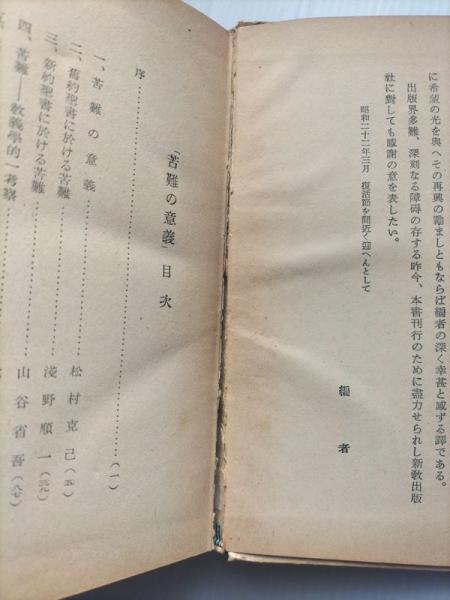 に希望の光を與へその再興の勵ましともならば編者の深く幸甚と感ずる譯である。
出版界多難、深刻なる障碍の存する昨今、本書刊行のために盡力せられし新敎出版
社に對しても感謝の意を表したい。
昭和二十二年三月　復活節を間近く迎へんとして
編者
「苦難の意義」目次
序……………………(一)
一、苦難の意義…………松村克己(五)
二、舊約聖書に於ける苦難…………淺野順一(三九)
三、新約聖書に於ける苦難…………山谷省吾(八七)
四、苦難――敎義學的一考察…………